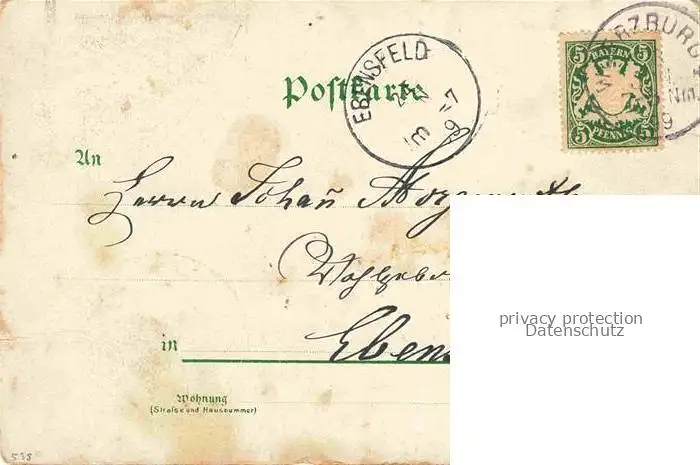 Postkarte
EBENSFELD
7
9
RZBURG
Nm
9
5 BAYERN 5
5 PFENNIG 5
An
Herrn Johañ
Wohlgebor
in Ebens
Wohnung
(Straße und Hausnummer)
privacy protection
Datenschutz
538